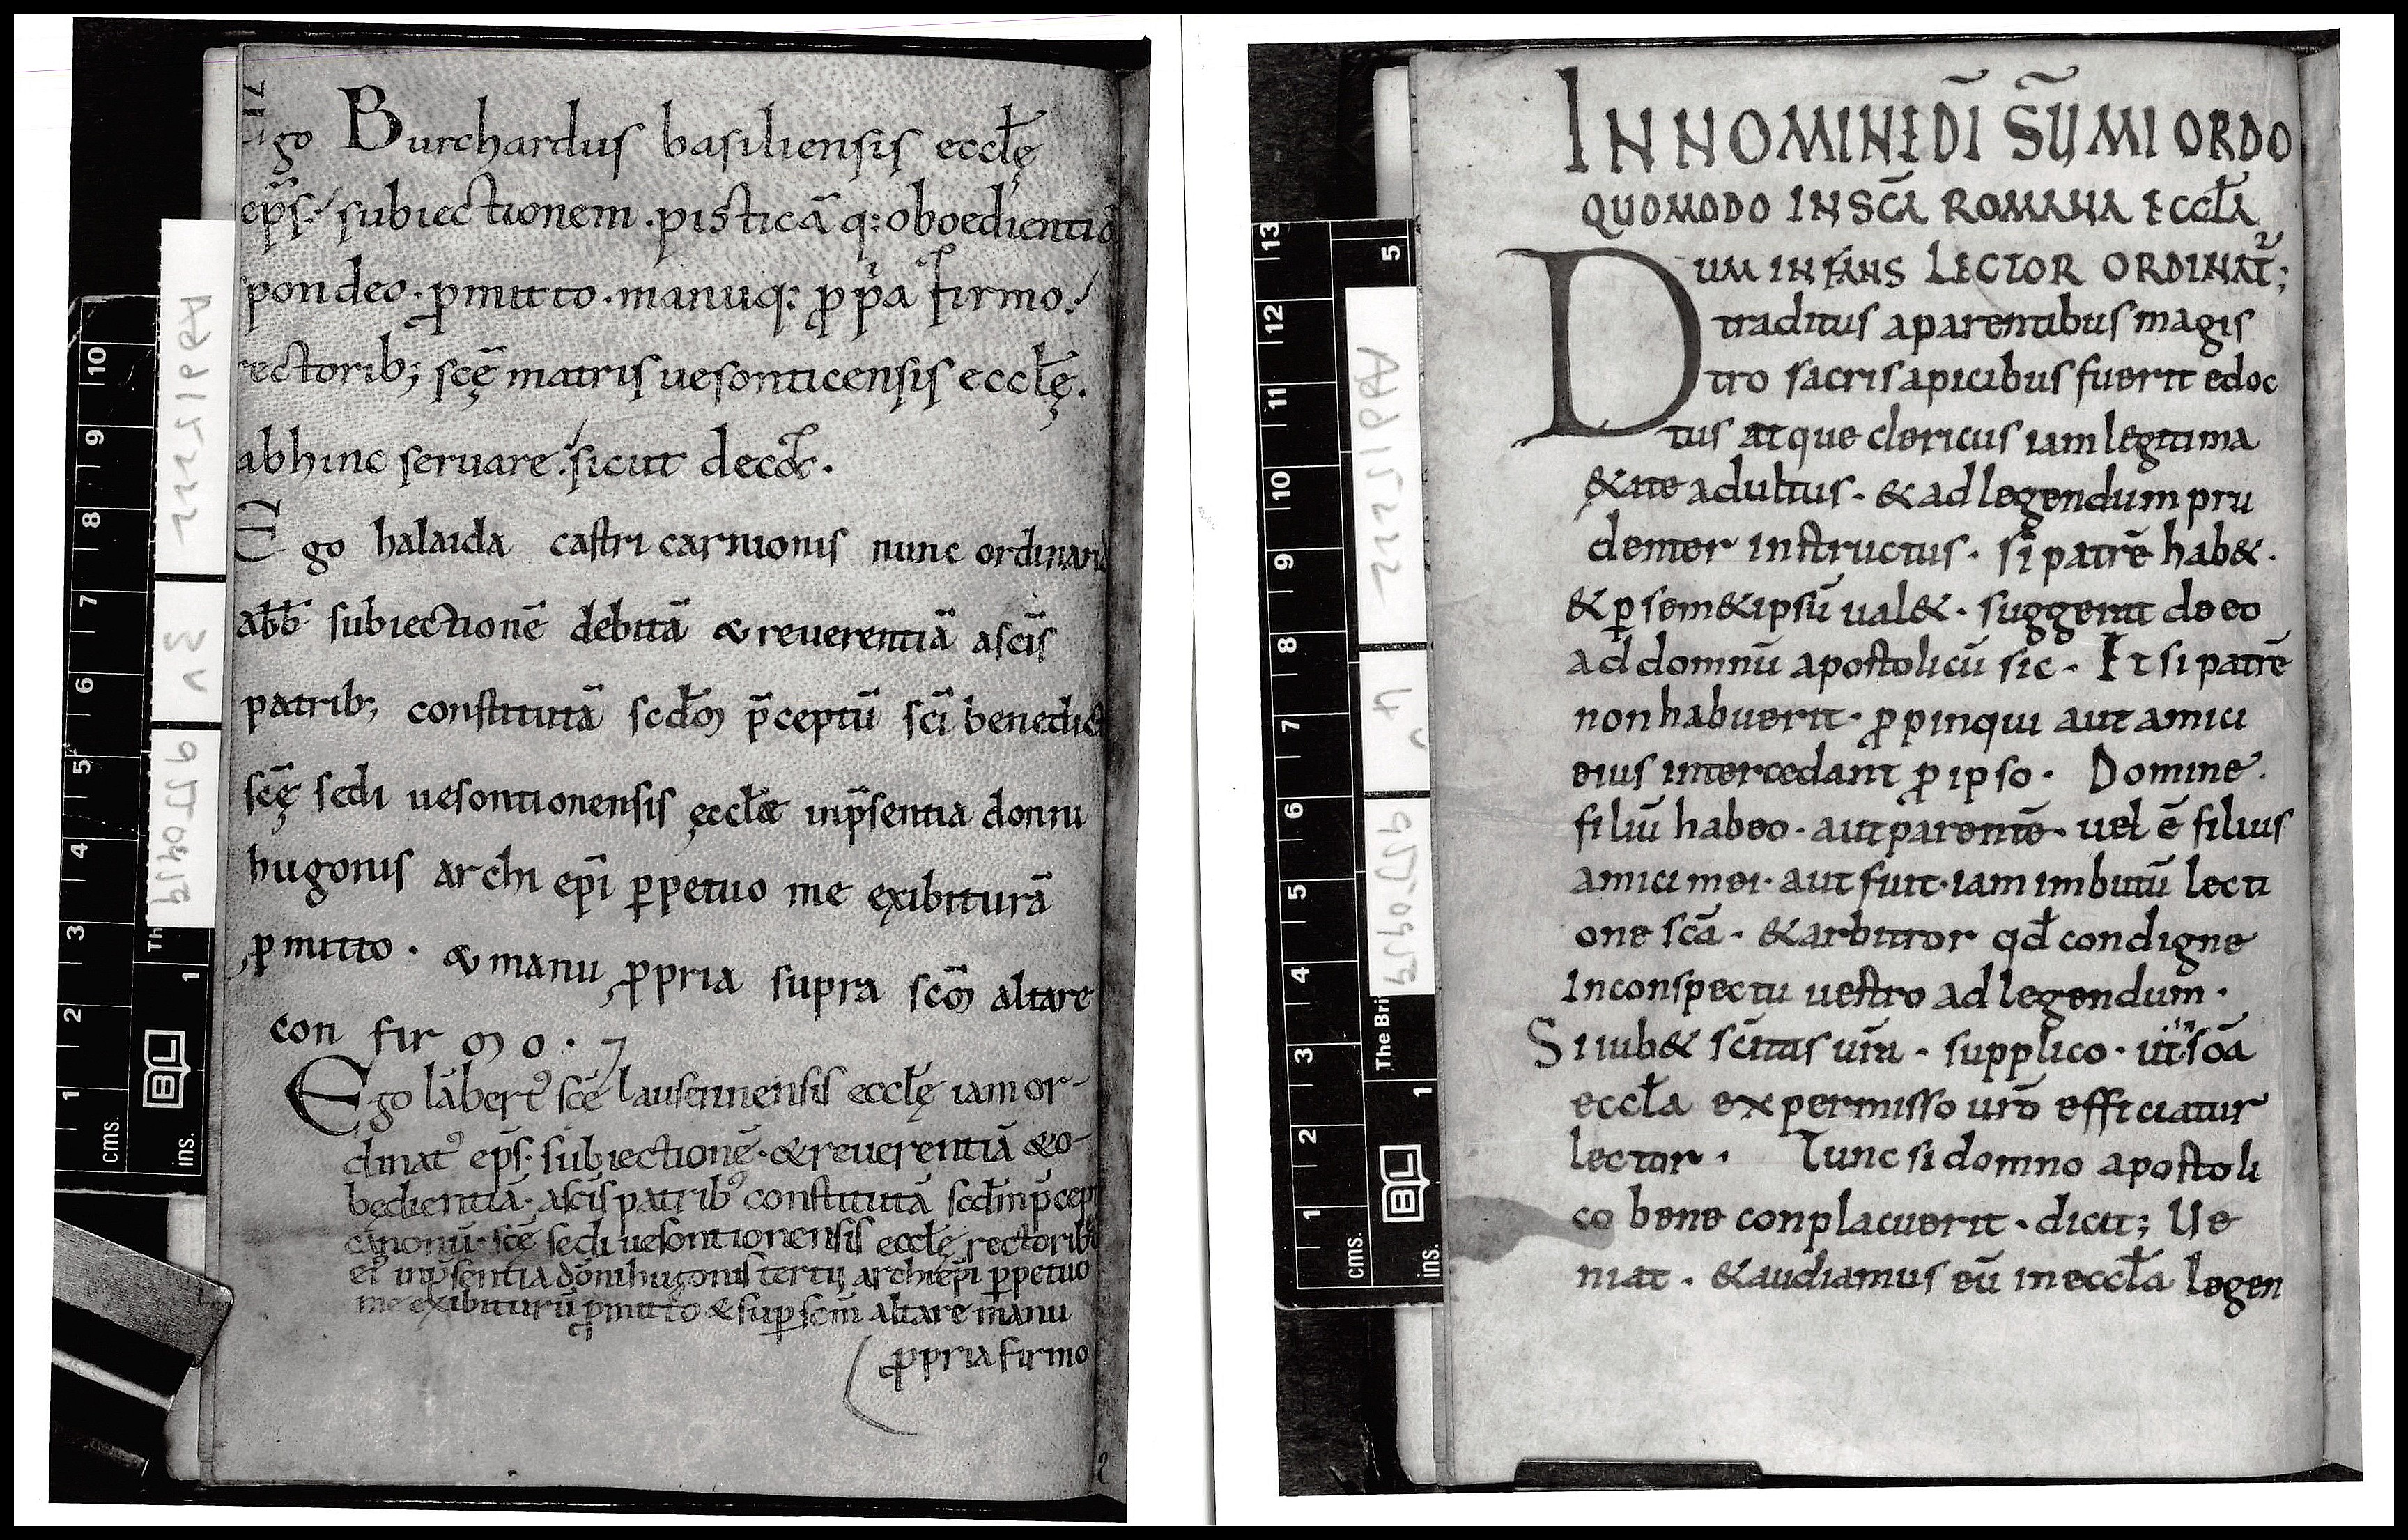 Ego Burchardus basiliensis eccłę
ep̄s. subiectionem. pisticā q: oboedientiā
pondeo. ꝓmitto. manuq: ꝓp̄a firmo.
rectorib; scę̄ matris uesonticensis eccłę.
abhinc seruare. sicut dec&.
Ego halaida castri carnionis nunc ordinand
abb subiectionē debitā & reuerentiā a sc̄is
patrib; constitutā scđm p̄ceptū sc̄i benedic
scę̄ sedi uesontionensis ęccłæ in p̄sentia donni
hugonis archi ep̄i ꝑpetuo me exibiturā
ꝓmitto. & manu ꝓpria supra sc̄m altare
con fir mo.
Ego lābertꝰ sc̄e lausennensis eccłę iam or-
dinatꝰ ep̄s. subiectionē. & reuerentiā & o-
będientiā. a sc̄is patribꝰ constitutā scđm p̄cept
canonū. sc̄e sedi uesontionensis eccłę rectoribꝰ
eiꝰ in p̄sentia dōni hugonis tertii archiep̄i ꝑpetuo
me exibiturū ꝓmitto & suꝑ sc̄m altare manu
ꝓpria firmo
Add 15222
3v
9JJ0419
10
9
8
7
6
5
4
3
2
1
cms.
Th
1
ins.
BL
IN NOMINE DĪ SŪMI ORDO
QUOMODO IN SC̄A ROMANA ECCŁA
DUM INFANS LECTOR ORDINAT̄;
traditus a parentibus magis
tro sacris apicibus fuerit edoc
tus atque clericus iam legitima
&ate adultus. & ad legendum pru
denter instructus. si patrē hab&.
& ꝑ sem&ipsū ual&. suggerit de eo
ad domnū apostolicū sic. Et si patrē
non habuerit. ꝓpinqui aut amici
eius intercedant ꝓ ipso. Domine.
filiū habeo. aut parentē. uel ē filius
amici mei. aut fuit. iam imbutū lecti
one sc̄a. & arbitror qđ condigne
In conspectu uestro ad legendum.
Si iub& sc̄itas ur̄a. supplico. ut in sc̄a
eccła ex permisso ur̄o efficiatur
lector. Tunc si domno apostoli
co bene conplacuerit. dicit; Ue
niat. & audiamus eū in eccła legen
Add 15222
4v
9JJ0419
13
12
11
10
9
8
7
6
5
4
3
2
1
cms.
5
The Bri
1
ins.
BL